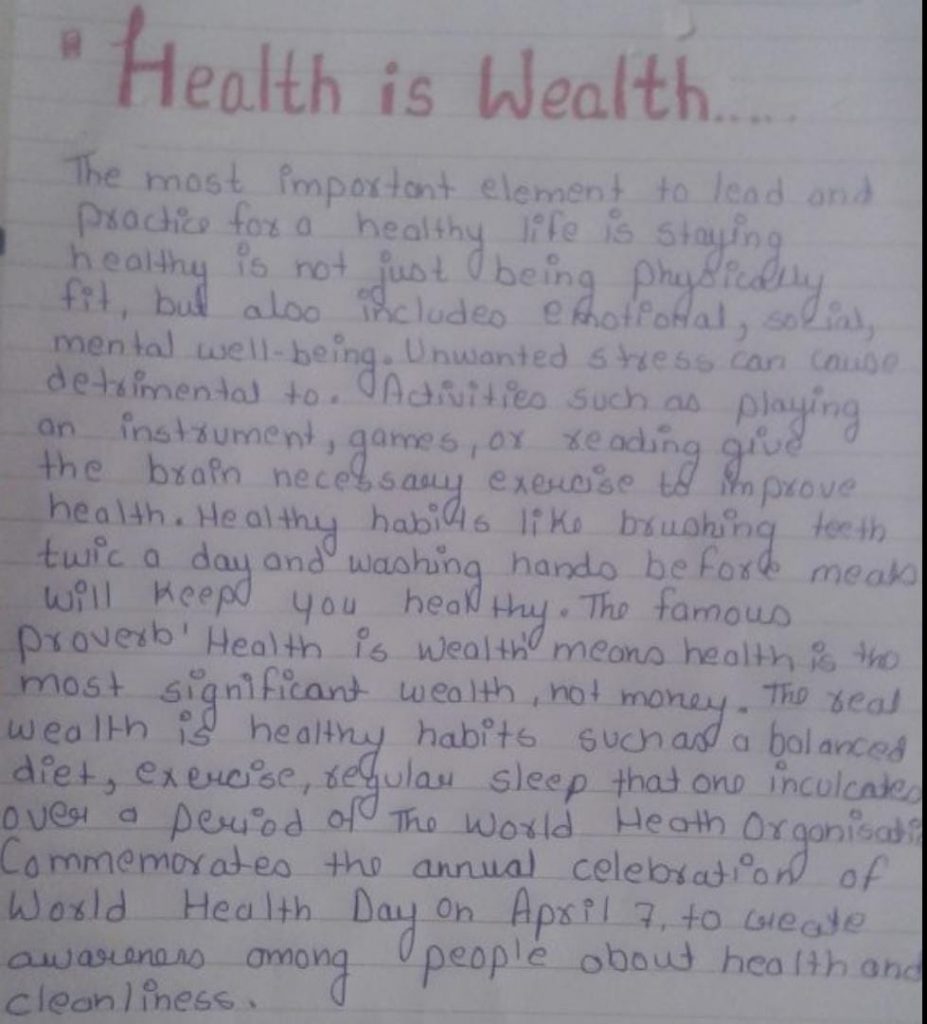 " Health is Wealth.....
The most important element to lead and
practice for a healthy life is staying
healthy is not just being physically
fit, but also includes emotional, social,
mental well-being. Unwanted stress can cause
detrimental to. Activities such as playing
an instrument, games, or reading give
the brain necessary exercise to improve
health. Healthy habits like brushing teeth
twic a day and washing hands before meals
will keep you healthy. The famous
proverb' Health is wealth' means health is the
most significant wealth, not money. The real
wealth is healthy habits such as a balanced
diet, exercise, regular sleep that one inculcates
over a period of The World Heath Organisati
Commemorates the annual celebration of
World Health Day on April 7, to create
awareness among people about health and
cleanliness.